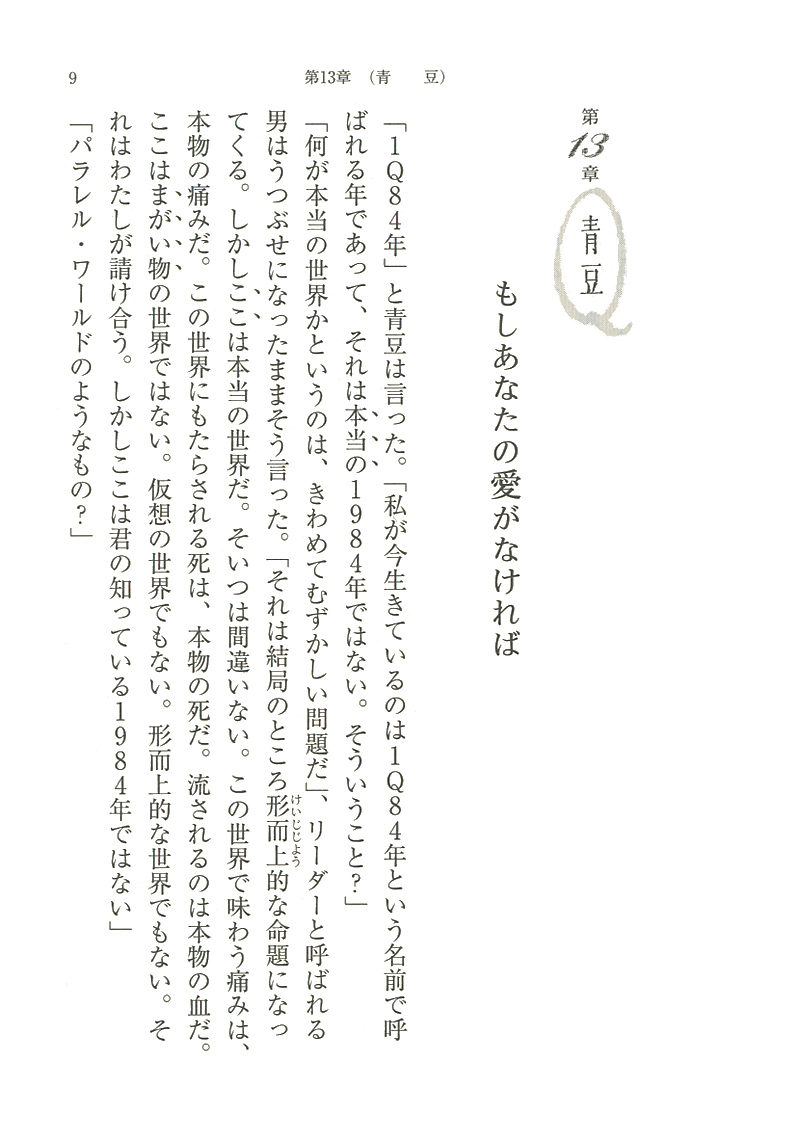 9
第13章 (青 豆)
第13章 青豆
もしあなたの愛がなければ
「1Q84年」と青豆は言った。「私が今生きているのは1Q84年という名前で呼
ばれる年であって、それは本当の1984年ではない。そういうこと?」
「何が本当の世界かというのは、きわめてむずかしい問題だ」、リーダーと呼ばれる
男はうつぶせになったままそう言った。「それは結局のところ形而上的な命題になっ
けいじじょう
てくる。しかしここは本当の世界だ。そいつは間違いない。この世界で味わう痛みは、
本物の痛みだ。この世界にもたらされる死は、本物の死だ。流されるのは本物の血だ。
ここはまがい物の世界ではない。仮想の世界でもない。形而上的な世界でもない。そ
れはわたしが請け合う。しかしここは君の知っている1984年ではない」
「パラレル・ワールドのようなもの?」